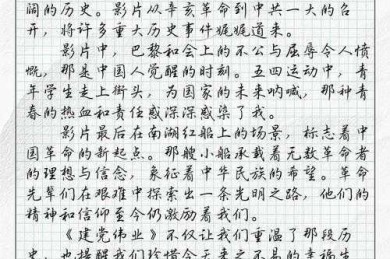 阔的历史。影片从辛亥革命到中共一大的召
开，将许多重大历史事件娓娓道来。
影片中，巴黎和会上的不公与屈辱令人愤
慨，那是中国人觉醒的时刻。五四运动中，青
年学生走上街头，为国家的未来呐喊，那种青
春的热血和责任感深深感染了我。
影片最后在南湖红船上的场景，标志着中
国革命的新起点。那艘小船承载着无数革命者
的理想与信念，象征着中华民族的希望。革命
先辈们在艰难中探索出一条光明之路，他们的
精神和信仰至今仍激励着我们。
《建党伟业》不仅让我们重温了那段历
史，也提醒我们珍惜今天来之不易的幸福生